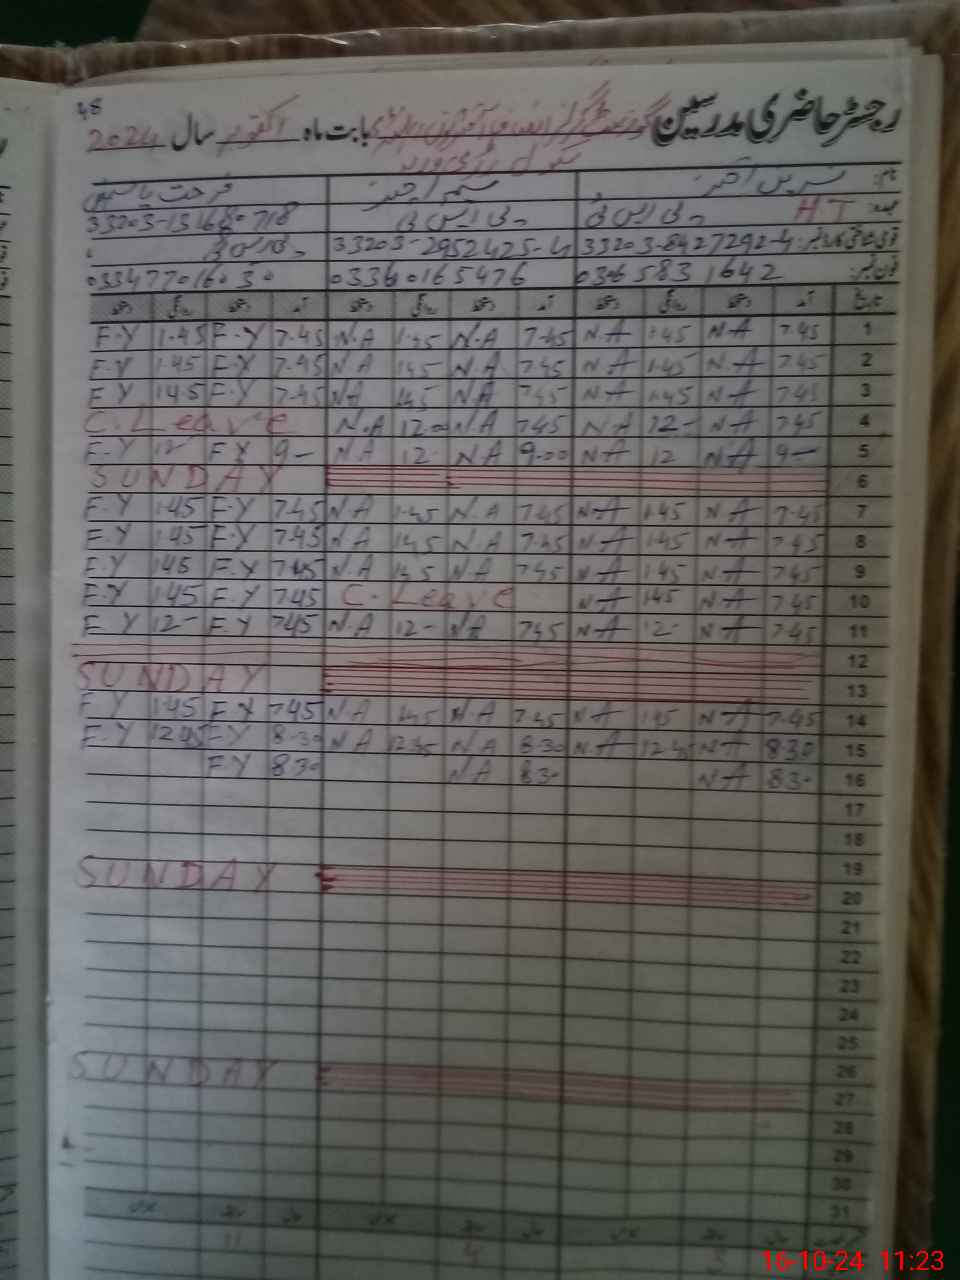 48
رجسٹر حاضری مدرسین گورنمنٹ گرلز بابت ماہ اکتوبر سال 2024
نام: نسرین اختر نسیم اختر فرحت یاسمین
عہدہ: HT پی ایس ٹی پی ایس ٹی 33203-131680718
قومی شناختی کارڈ نمبر: 33203-8427292-4 33203-2952425-4 پی ایس ٹی
فون نمبر: 0306 583 1642 03360165476 033477016030
تاریخ آمد دستخط روانگی دستخط آمد دستخط روانگی دستخط آمد دستخط روانگی دستخط
F.Y 1.45 F.Y 7.45 N.A 1.45 N.A 7.45 N A 1.45 N A 7.45 1
F.Y 1.45 F.Y 7.45 N.A 1.45 N.A 7.45 N A 1.45 N A 7.45 2
F Y 1.45 F.Y 7.45 NA 1.45 N.A 7.45 N A 1.45 N A 7.45 3
C. Leave N.A 12.00 N A 7.45 N A 12- N A 7.45 4
F.Y 12 F Y 9- N A 12 N A 9.00 N A 12 N A 9- 5
SUNDAY 6
F.Y 1.45 F.Y 7.45 N A 1.45 N.A 7.45 N A 1.45 N A 7.45 7
F.Y 1.45 F.Y 7.45 N A 1.45 N.A 7.45 N A 1.45 N A 7.45 8
F.Y 1.45 F.Y 7.45 N.A 1.45 N A 7.45 N A 1.45 N A 7.45 9
F.Y 1.45 F.Y 7.45 C. Leave N A 1.45 N A 7.45 10
F Y 12- F.Y 7.45 N.A 12- N A 7.45 N A 12- N A 7.45 11
12
SUNDAY 13
F Y 1.45 F Y 7.45 N.A 1.45 N.A 7.45 N A 1.45 N A 7.45 14
F.Y 12.45 F Y 8.30 N A 12.45 N A 8.30 N.A 12.45 N A 8.30 15
F Y 8.30 N A 8.30 N A 8.30 16
17
18
SUNDAY 19
20
21
22
23
24
25
SUNDAY 26
27
28
29
30
31
16-10-24 11:23